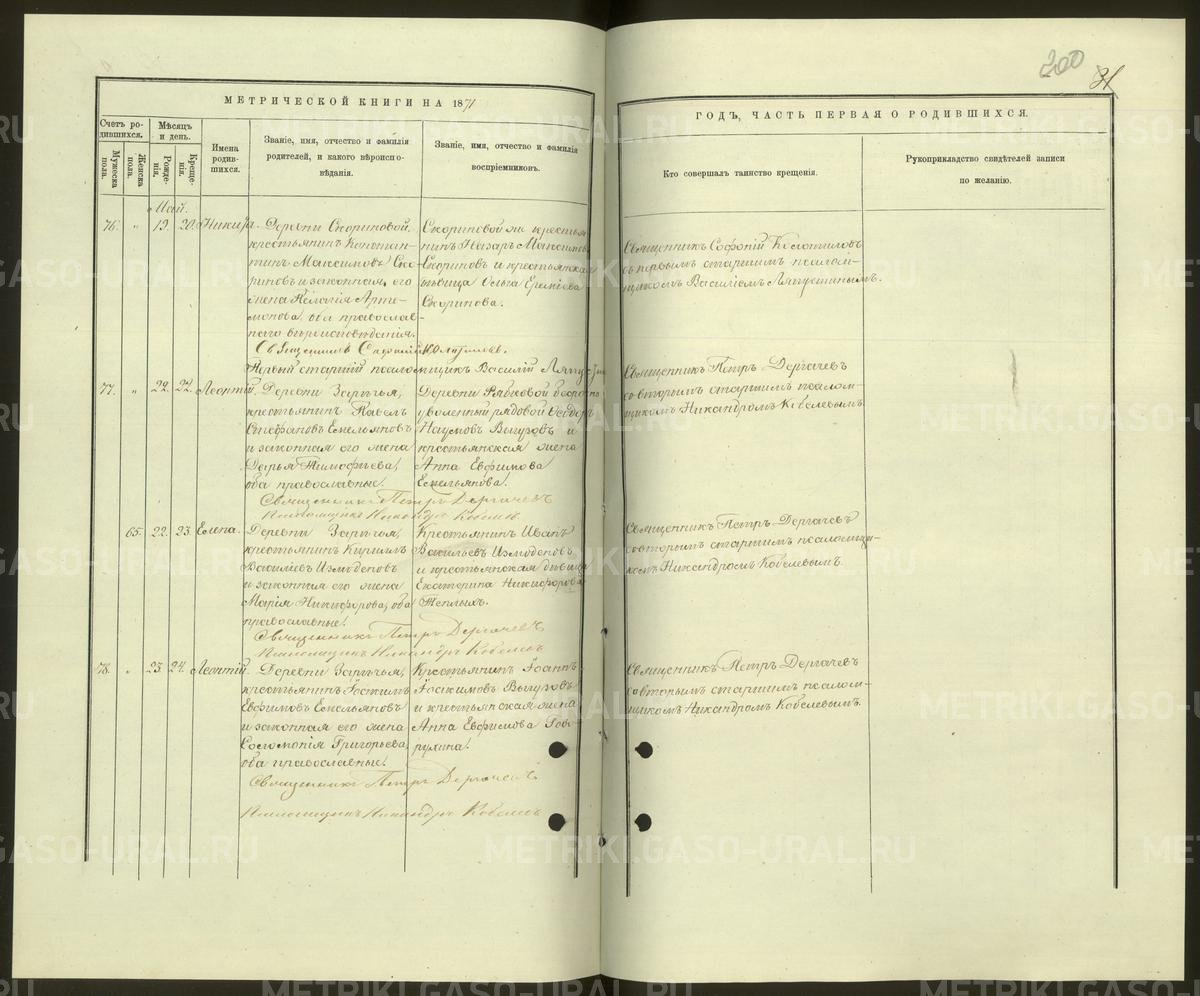 200
31
МЕТРИЧЕСКОЙ КНИГИ НА 1871
ГОДЪ, ЧАСТЬ ПЕРВАЯ О РОДИВШИХСЯ.
Счетъ родившихся.
Мужеска пола.
Женска пола.
Мѣсяцъ и день.
Рожденія.
Крещенія.
Имена родившихся.
Званіе, имя, отчество и фамилія
родителей, и какого вѣроиспо-
вѣданія.
Званіе, имя, отчество и фамилія
воспріемниковъ.
Кто совершалъ таинство крещенія.
Рукоприкладство свидѣтелей записи
по желанію.
Май.
76. " 19. 20. Никита.
Деревни Скориновой,
крестьянинъ Констан-
тинъ Максимовъ Ско-
риновъ и законная его
жена Пелагія Арте-
монова, оба православ-
наго вѣроисповѣданія.
Скориновой же крестья-
нинъ Назаръ Максимовъ
Скориновъ и крестьянская
дѣвица Ольга Еремѣева
Скоринова.
Священникъ Софоній
Первый старшій псаломщикъ Василій
Священникъ Софоній
съ первымъ старшимъ псалом-
щикомъ Василіемъ Ляпустинымъ.
77. " 22. 22. Леонтій.
Деревни Зарѣчья,
крестьянинъ Павелъ
Стефановъ Емельяновъ
и законная его жена
Дарья Тимофѣева,
оба православные.
Деревни
уволенный рядовой Ѳеодоръ
Наумовъ Вигуровъ и
крестьянская жена
Анна Евфимова
Емельянова.
Священникъ Петръ Дергачевъ
Псаломщикъ Никандръ Кобелевъ
Священникъ Петръ Дергачевъ
со вторымъ старшимъ псалом-
щикомъ Никандромъ Кобелевымъ.
65. 22. 23. Елена.
Деревни Зарѣчья,
крестьянинъ Кириллъ
Васильевъ Измоденовъ
и законная его жена
Марія Никифорова, оба
православные.
Крестьянинъ Иванъ
Васильевъ Измоденовъ,
и крестьянская дѣвица
Екатерина Никифорова
Теплыхъ.
Священникъ Петръ Дергачевъ
Псаломщикъ Никандръ Кобелевъ
Священникъ Петръ Дергачевъ
со вторымъ старшимъ псаломщи-
комъ Никандромъ Кобелевымъ.
78. " 23. 24. Леонтій.
Деревни Зарѣчья,
крестьянинъ
Евфимовъ Емельяновъ
и законная его жена
Соломонія Григорьева,
оба православные.
Крестьянинъ Іоаннъ
Іоакимовъ Вигуровъ
и крестьянская жена
Анна Евфимова Гово-
рухина.
Священникъ Петръ Дергачевъ
Псаломщикъ Никандръ Кобелевъ
Священникъ Петръ Дергачевъ
со вторымъ старшимъ псалом-
щикомъ Никандромъ Кобелевымъ.
METRIKI.GASO-URAL.RU